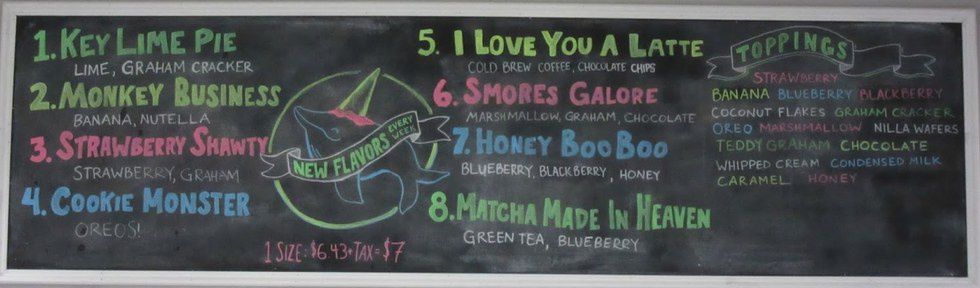 1. KEY LIME PIE
LIME, GRAHAM CRACKER
2. MONKEY BUSINESS
BANANA, NUTELLA
3. STRAWBERRY SHAWTY
STRAWBERRY, GRAHAM
4. COOKIE MONSTER
OREOS!
NEW FLAVORS EVERY WEEK
1 SIZE: $6.43+TAX=$7
5. I LOVE YOU A LATTE
COLD BREW COFFEE, CHOCOLATE CHIPS
6. SMORES GALORE
MARSHMALLOW, GRAHAM, CHOCOLATE
7. HONEY BOO BOO
BLUEBERRY, BLACKBERRY, HONEY
8. MATCHA MADE IN HEAVEN
GREEN TEA, BLUEBERRY
TOPPINGS
STRAWBERRY
BANANA BLUEBERRY BLACKBERRY
COCONUT FLAKES GRAHAM CRACKER
OREO MARSHMALLOW NILLA WAFERS
TEDDY GRAHAM CHOCOLATE
WHIPPED CREAM CONDENSED MILK
CARAMEL HONEY